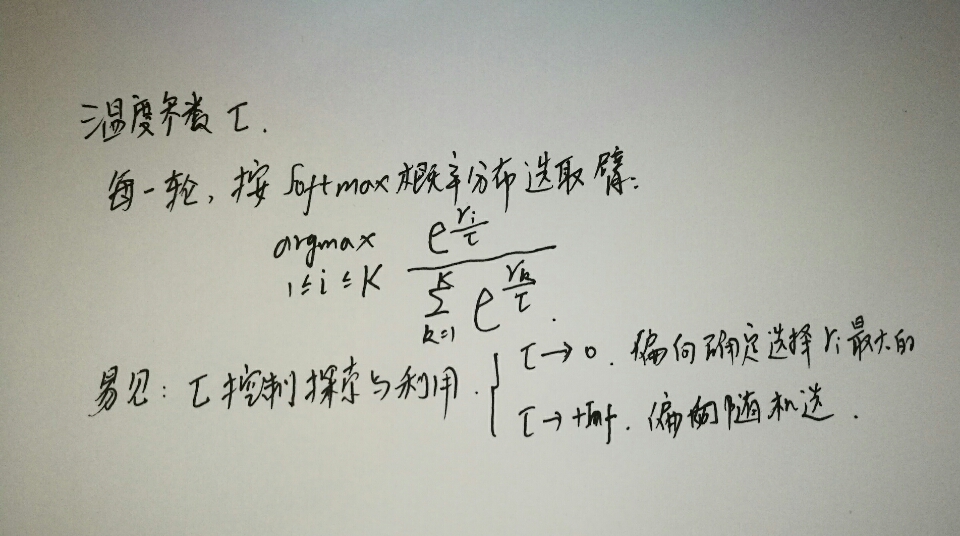 温度参数 τ.
每一轮, 按 Softmax 概率分布选取臂:
argmax 1≤i≤K e^(r_i/τ) / ∑_{k=1}^{K} e^(r_k/τ).
易见: τ 控制探索与利用. { τ→0. 偏向确定选择 r_i 最大的
τ→+Inf. 偏向随机选.